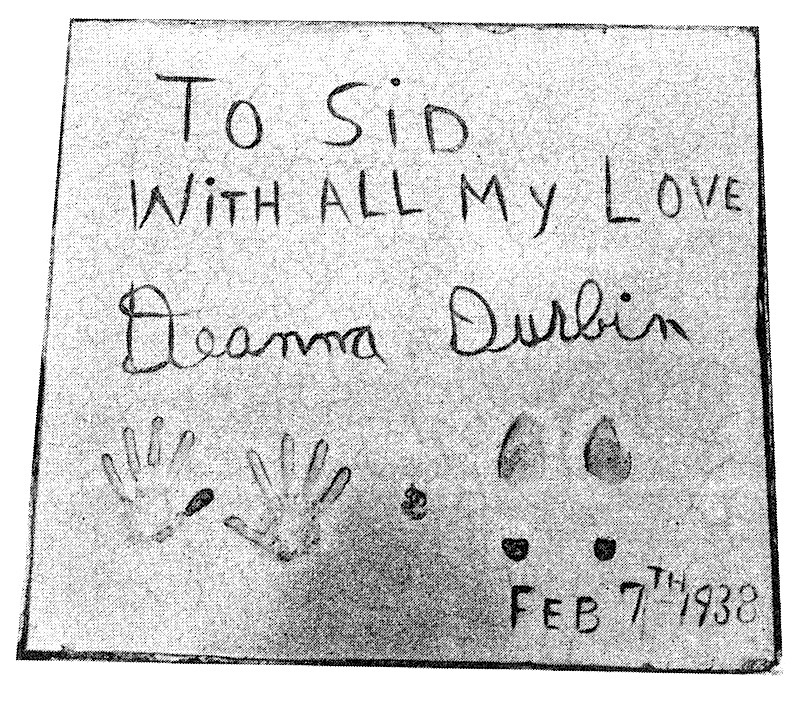 To SiD
WiTH ALL My LOVE
Deanna Durbin
FEB 7TH 1938